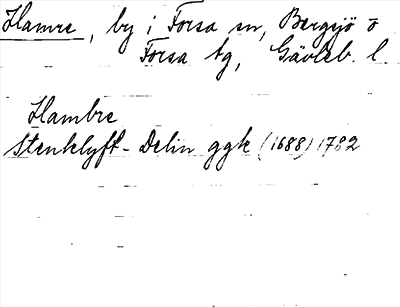 Hamre, by i Forsa sn, Bergsjö o
Forsa tg, Gävleb. l.
Hambre
Stenklyft-Delin ggk (1688) 1782